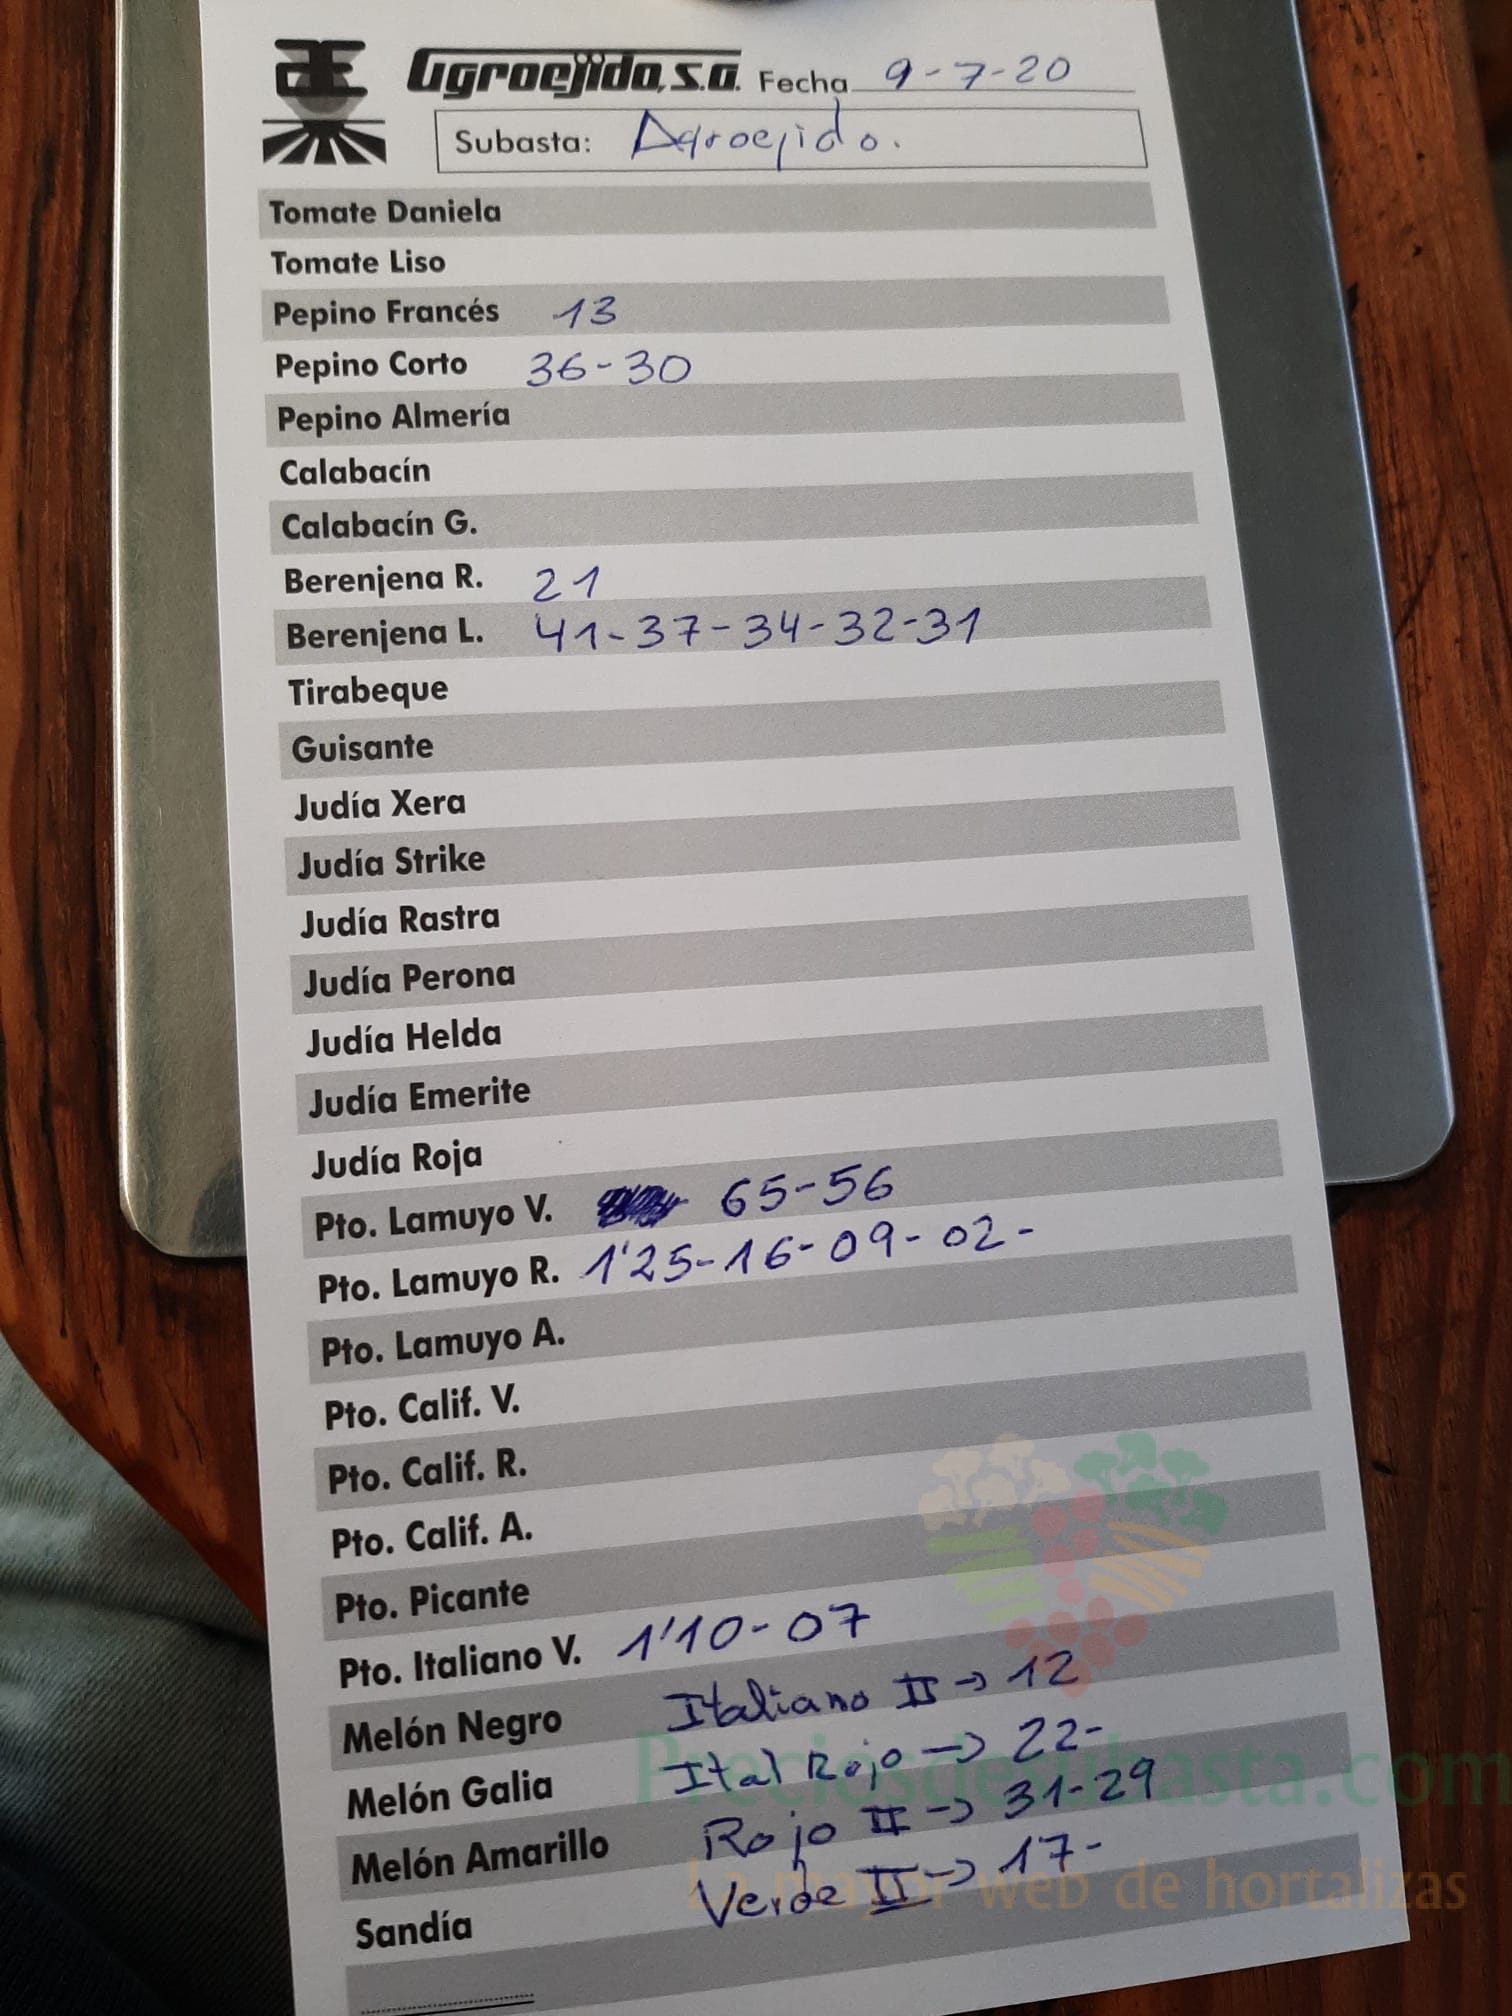 Æ Agroejido, S.A. Fecha 9-7-20
Subasta: Agroejido.
Tomate Daniela
Tomate Liso
Pepino Francés 13
Pepino Corto 36-30
Pepino Almería
Calabacín
Calabacín G.
Berenjena R. 21
Berenjena L. 41-37-34-32-31
Tirabeque
Guisante
Judía Xera
Judía Strike
Judía Rastra
Judía Perona
Judía Helda
Judía Emerite
Judía Roja
Pto. Lamuyo V. 65-56
Pto. Lamuyo R. 1'25-16-09-02-
Pto. Lamuyo A.
Pto. Calif. V.
Pto. Calif. R.
Pto. Calif. A.
Pto. Picante
Pto. Italiano V. 1'10-07
Melón Negro Italiano II → 12
Melón Galia Ital Rojo → 22-
Melón Amarillo Rojo II → 31-29
Sandía Verde II → 17-
Preciosdesubasta.com
La mayor web de hortalizas